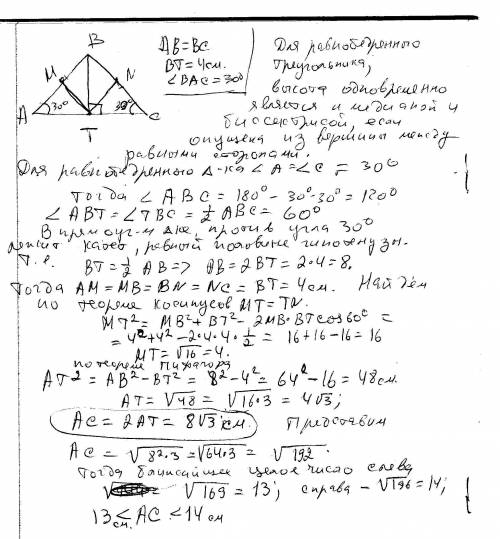 B
M
N
A
30°
30°
C
T
AB=BC
BT=4см.
∠BAC=30°
Для равнобедренного
треугольника,
высота одновременно
является и медианой и
биссектрисой, если
опущена из вершины между
равными сторонами.
Для равнобедренного Δ-ка ∠A=∠C = 30°
Тогда ∠ABC = 180° - 30° - 30° = 120°
∠ABT = ∠TBC = 1/2 ABC = 60°
В прямоуг-м Δке, против угла 30°
лежит катет, равный половине гипотенузы.
Т.е. BT = 1/2 AB => AB = 2BT = 2·4 = 8.
Тогда AM = MB = BN = NC = BT = 4см. Найдём
по теореме косинусов MT = TN.
MT² = MB² + BT² - 2MB·BT cos60° =
= 4² + 4² - 2·4·4·1/2 = 16 + 16 - 16 = 16
MT = √16 = 4.
по теореме Пифагора
AT² = AB² - BT² = 8² - 4² = 64 - 16 = 48 см.
AT = √48 = √16·3 = 4√3;
AC = 2AT = 8√3 см. Представим
AC = √8²·3 = √64·3 = √192.
Тогда ближайшее целое число слева
√169 = 13; справа - √196 = 14;
13 см < AC < 14 см